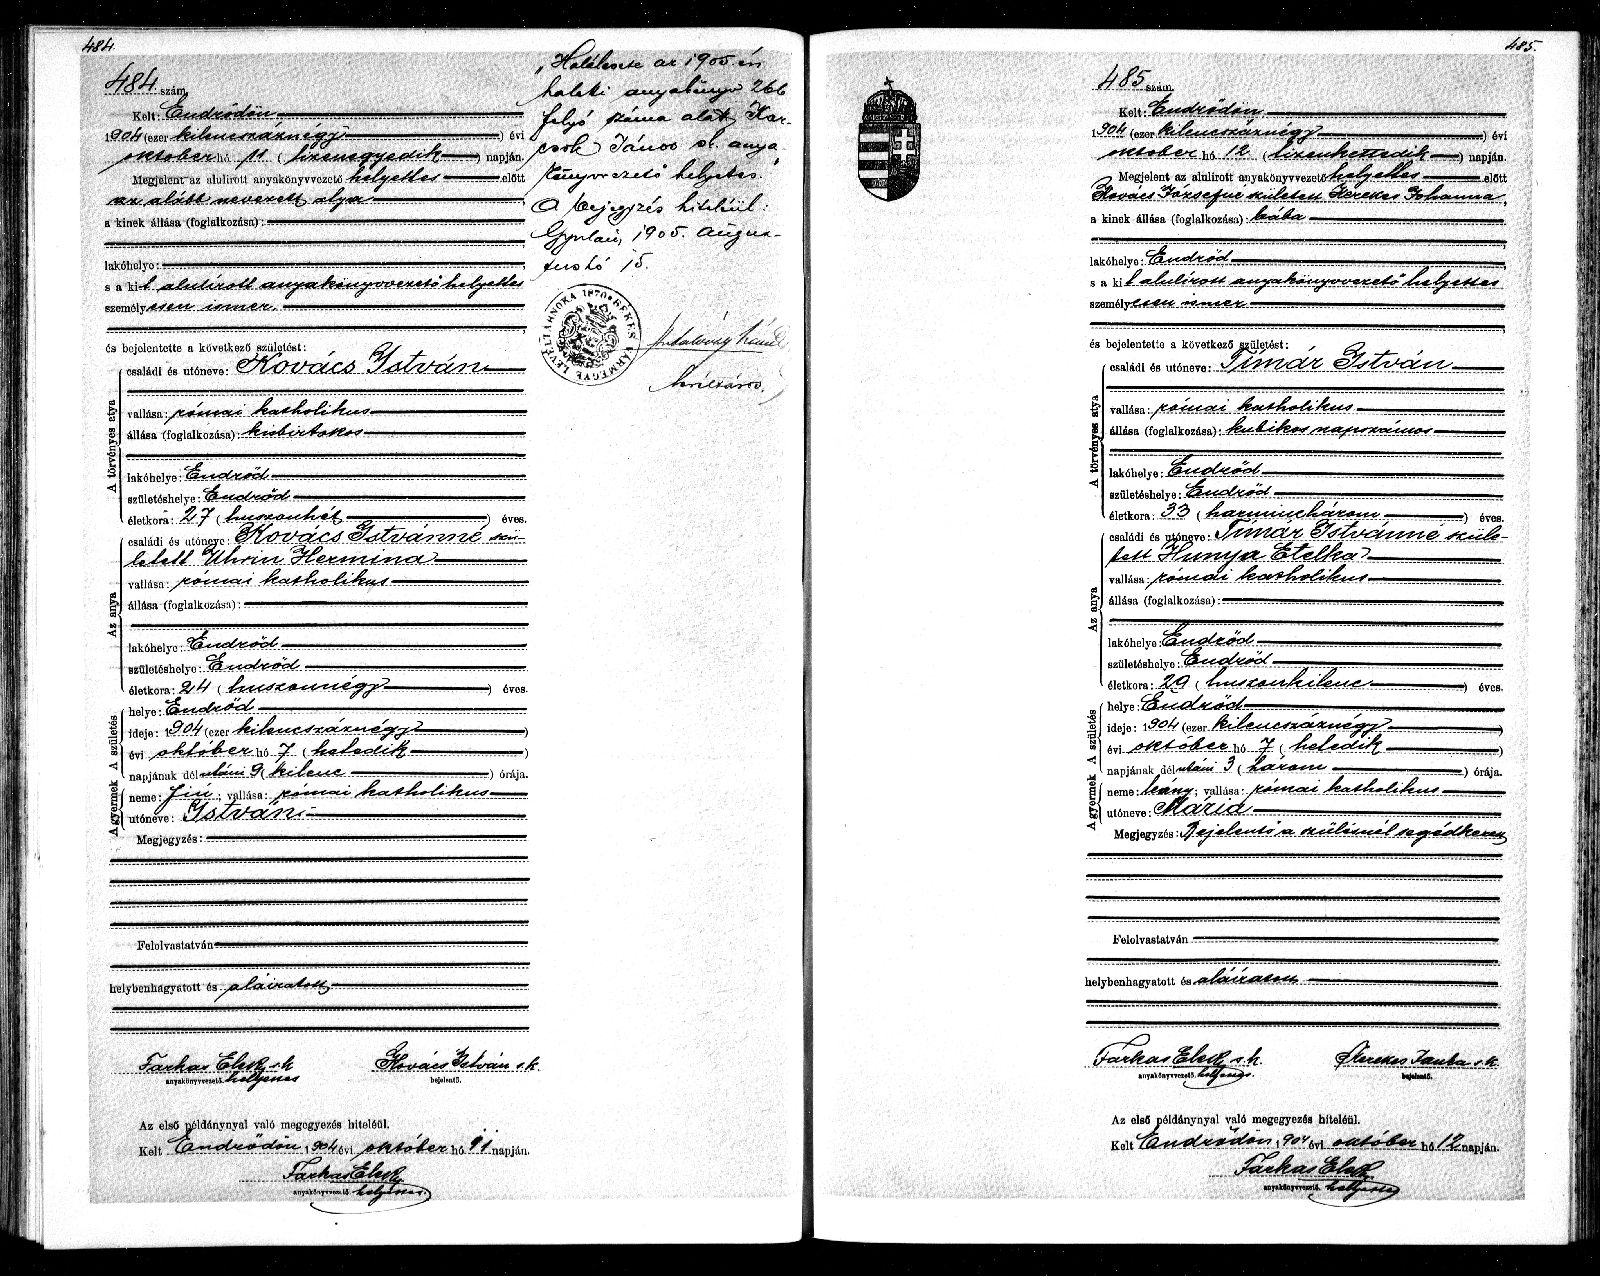 484.
484 szám.
Kelt: Endrődön,
1904 (ezer kilencszáznégy) évi
október hó 11 (tizenegyedik) napján.
Megjelent az alulirott anyakönyvvezető helyettes előtt
az alább nevezett atya
a kinek állása (foglalkozása):
lakóhelye:
s a kit alulírott anyakönyvvezető helyettes
személyesen ismer.
és bejelentette a következő születést:
A törvényes atya
családi és utóneve: Kovács István
vallása: római katholikus
állása (foglalkozása): kisbirtokos
lakóhelye: Endrőd
születéshelye: Endrőd
életkora: 27 (huszonhét) éves.
Az anya
családi és utóneve: Kovács Istvánné szü-
letett Uhrin Hermina
vallása: római katholikus
állása (foglalkozása):
lakóhelye: Endrőd
születéshelye: Endrőd
életkora: 24 (huszonnégy) éves.
A születés
helye: Endrőd
ideje: 1904 (ezer kilencszáznégy
évi október hó 7 (hetedik)
napjának délutáni 9 (kilenc) órája.
A gyermek
neme: fiu; vallása: római katholikus
utóneve: István
Megjegyzés:
Felolvastatván
helybenhagyatott és aláiratott
Farkas Elek s.k. Kovács István s.k.
anyakönyvvezető helyettes bejelentő.
Az első példánynyal való megegyezés hiteléül.
Kelt Endrődön 1904 évi október hó 11 napján.
Farkas Elek
anyakönyvvezető helyettes
„Halálesete az 1905 évi
halotti anyakönyv 266
folyó száma alatt. Kar-
csok János s.k. anya-
könyvvezető helyettes.
A bejegyzés hiteléül:
Gyulán, 1905. Augusz-
tus hó 15.
BÉKÉS VÁRMEGYE LEVÉLTÁRNOKA 1870
levéltáros
485.
485 szám.
Kelt: Endrődön
1904 (ezer kilencszáznégy) évi
október hó 12 (tizenkettedik) napján.
Megjelent az alulirott anyakönyvvezető helyettes előtt
Kovács Józsefné született Kerekes Johanna,
a kinek állása (foglalkozása): bába
lakóhelye: Endrőd
s a kit alulírott anyakönyvvezető helyettes
személyesen ismer
és bejelentette a következő születést:
A törvényes atya
családi és utóneve: Tímár István
vallása: római katholikus
állása (foglalkozása): kubikos napszámos
lakóhelye: Endrőd
születéshelye: Endrőd
életkora: 33 (harminchárom) éves.
Az anya
családi és utóneve: Tímár Istvánné szüle-
tett Hunya Etelka
vallása: római katholikus
állása (foglalkozása):
lakóhelye: Endrőd
születéshelye: Endrőd
életkora: 29 (huszonkilenc) éves.
A születés
helye: Endrőd
ideje: 1904 (ezer kilencszáznégy
évi október hó 7 (hetedik)
napjának délutáni 3 (három) órája.
A gyermek
neme: leány; vallása: római katholikus
utóneve: Mária
Megjegyzés: Bejelentő a szülésnél segédkezett
Felolvastatván
helybenhagyatott és aláiratott
Farkas Elek s.k. Kerekes Janka s.k.
anyakönyvvezető helyettes. bejelentő.
Az első példánynyal való megegyezés hiteléül.
Kelt Endrődön 1904 évi október hó 12 napján.
Farkas Elek
anyakönyvvezető helyettes